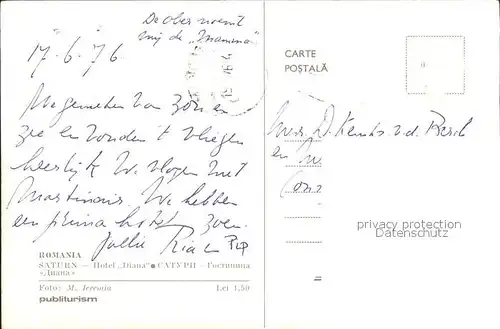 De ober noemt
mij de „Mamma"
17.6.76
We genieten van zon en
zee en vonden 't vliegen
heerlijk. We vlogen met
Martinair. We hebben
een prima hotel. Zoen
Jullie Ria en
ROMANIA
SATURN — Hotel „Diana" ● САТУРН — Гостиница
«Диана»
Foto: M. Ieremia Lei 1,50
publiturism
CARTE
POȘTALĂ
en
privacy protection
oldthing.de